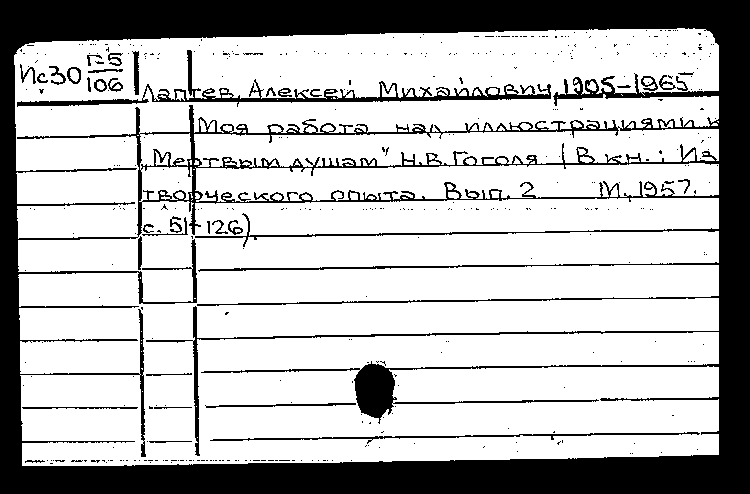 Ис30 Г-5/106
Лаптев, Алексей Михайлович, 1905-1965
Моя работа над иллюстрациями к
„Мертвым душам" Н.В. Гоголя (В кн.: Из
творческого опыта. Вып. 2 М., 1957.
с. 51-126).